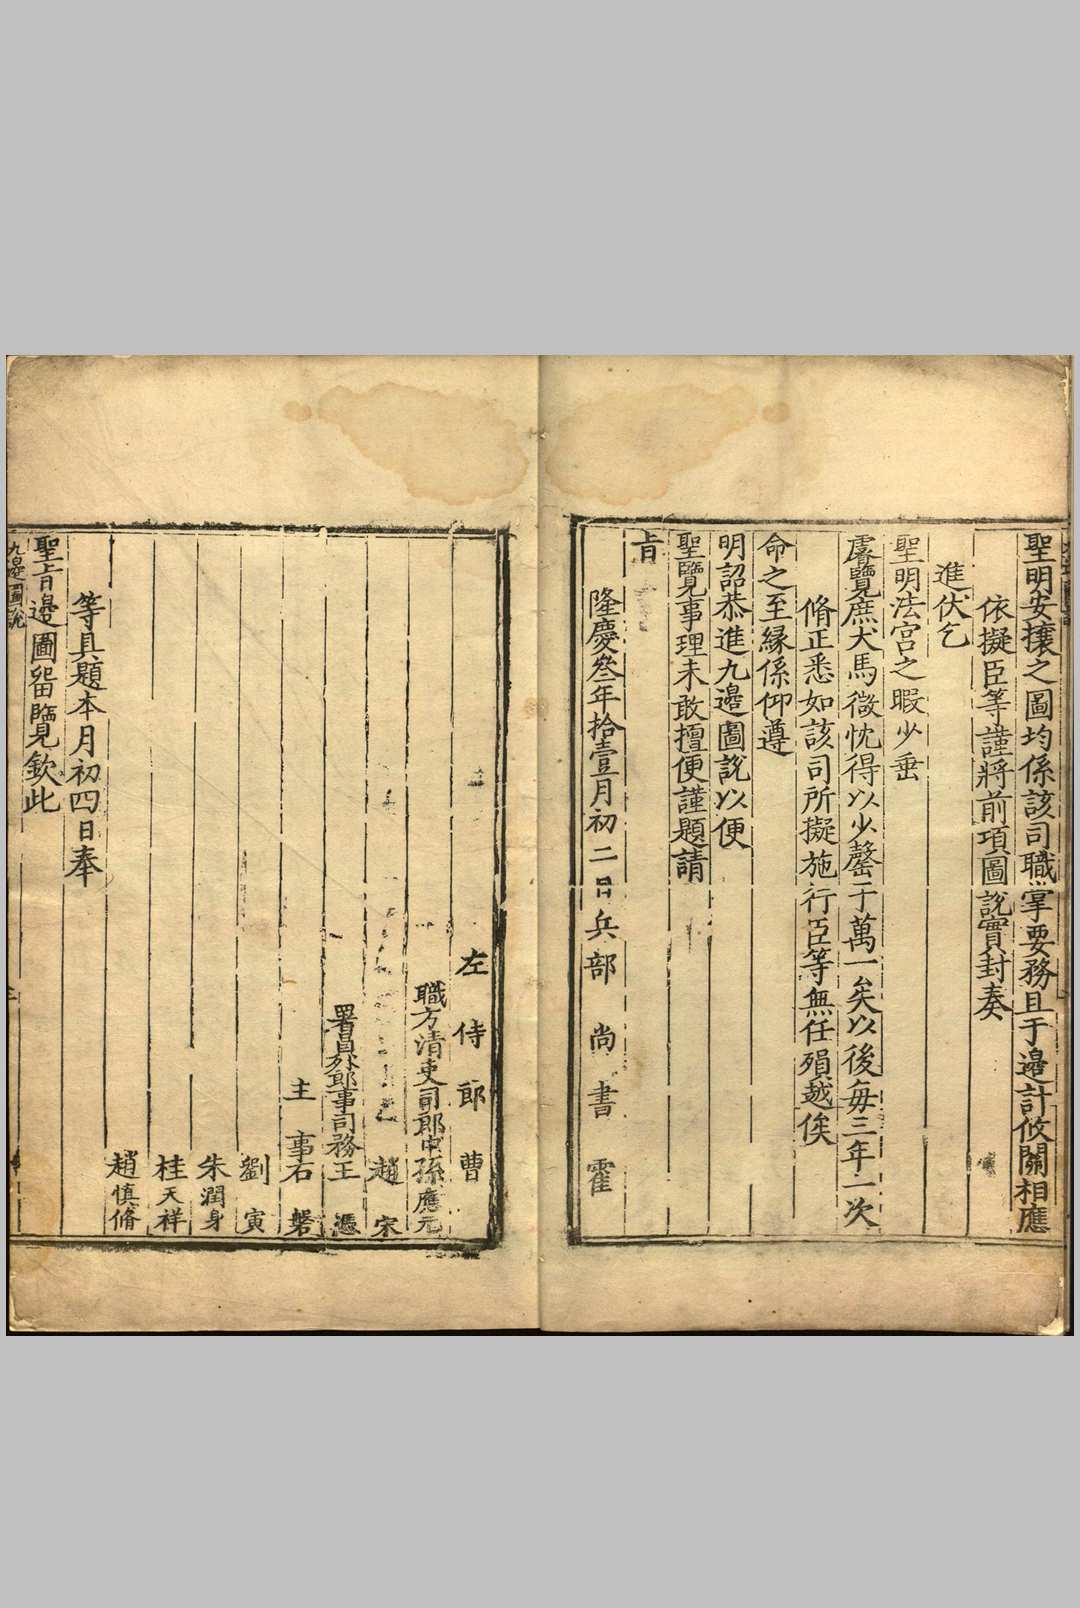 聖明安攘之圖均係該司職掌要務且于邊計攸關相應
依擬臣等謹將前項圖說實封奏
進伏乞
聖明法宮之暇少垂
睿覽庶犬馬微忱得以少罄于萬一矣以後每三年一次
脩正悉如該司所擬施行臣等無任殞越俟
命之至緣係仰遵
明詔恭進九邊圖說以便
聖覽事理未敢擅便謹題請
旨
隆慶叄年拾壹月初二日兵部尚書霍
左侍郎曹
職方清吏司郎中孫應元
趙宋
署員外郎事司務王憑
主事石磐
劉寅
朱潤身
桂天祥
趙慎脩
等具題本月初四日奉
聖旨邊圖留覽欽此
九邊圖說